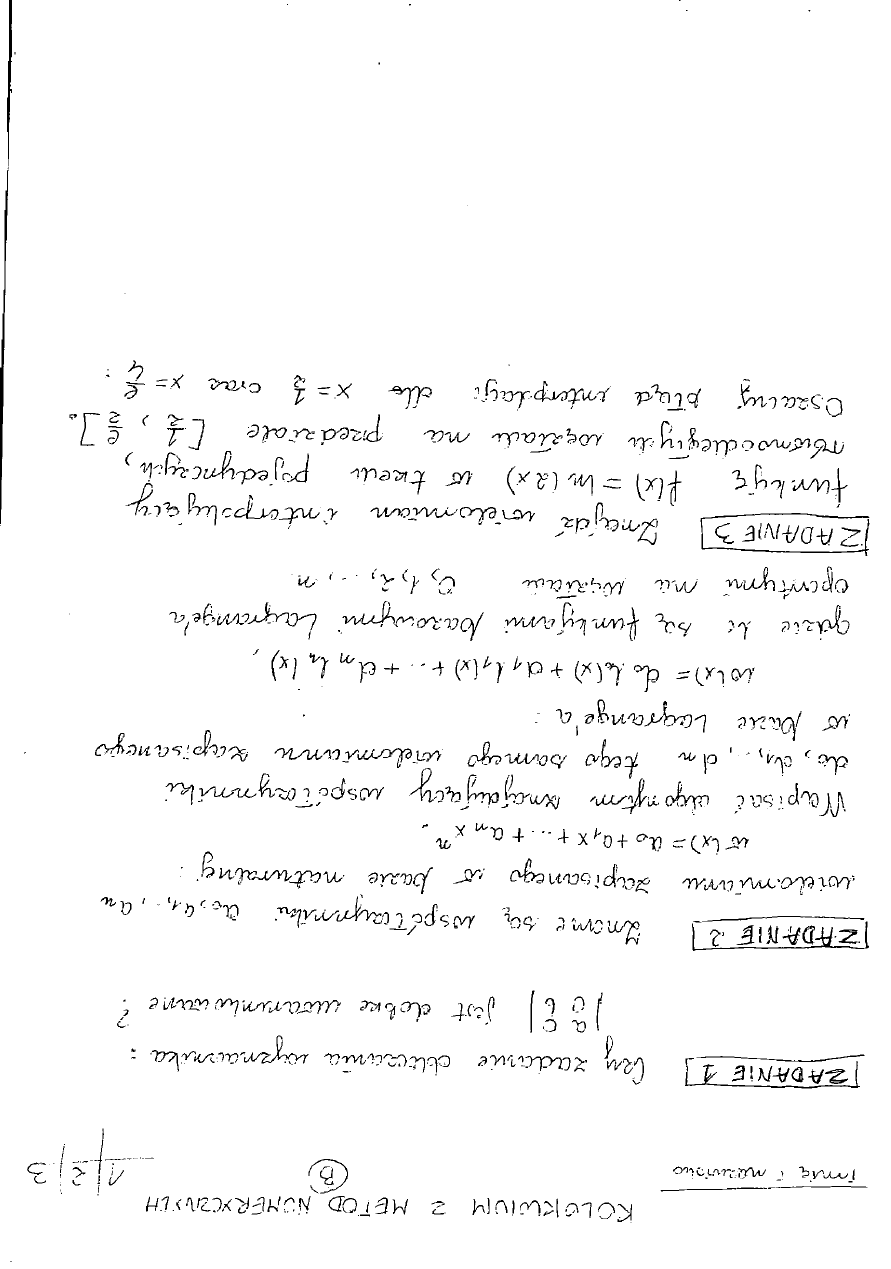 KOLOKWIUM Z METOD NUMERYCZNYCH
Imię i nazwisko (B) 1|2|3
ZADANIE 1 Czy zadanie obliczania wyznacznika:
|a c| jest dobrze uwarunkowane?
|0 b|
ZADANIE 2 Znane są współczynniki a₀, a₁, .., aₙ
wielomianu zapisanego w bazie naturalnej:
w(x) = a₀ + a₁x + ... + aₙxⁿ.
Napisać algorytm znajdujący współczynniki
d₀, d₁, .., dₙ tego samego wielomianu zapisanego
w bazie Lagrange'a:
w(x) = d₀ l₀(x) + d₁ l₁(x) + ... + dₙ lₙ(x),
gdzie li są funkcjami bazowymi Lagrange'a
opartymi na węzłach 0, 1, 2, ..., n
ZADANIE 3 Znajdź wielomian interpolujący
funkcję f(x) = ln(2x) w trzech pojedynczych,
równoodległych węzłach na przedziale [1/2, e/2].
Oszacuj błąd interpolacji dla x = 1/2 oraz x = e/4: